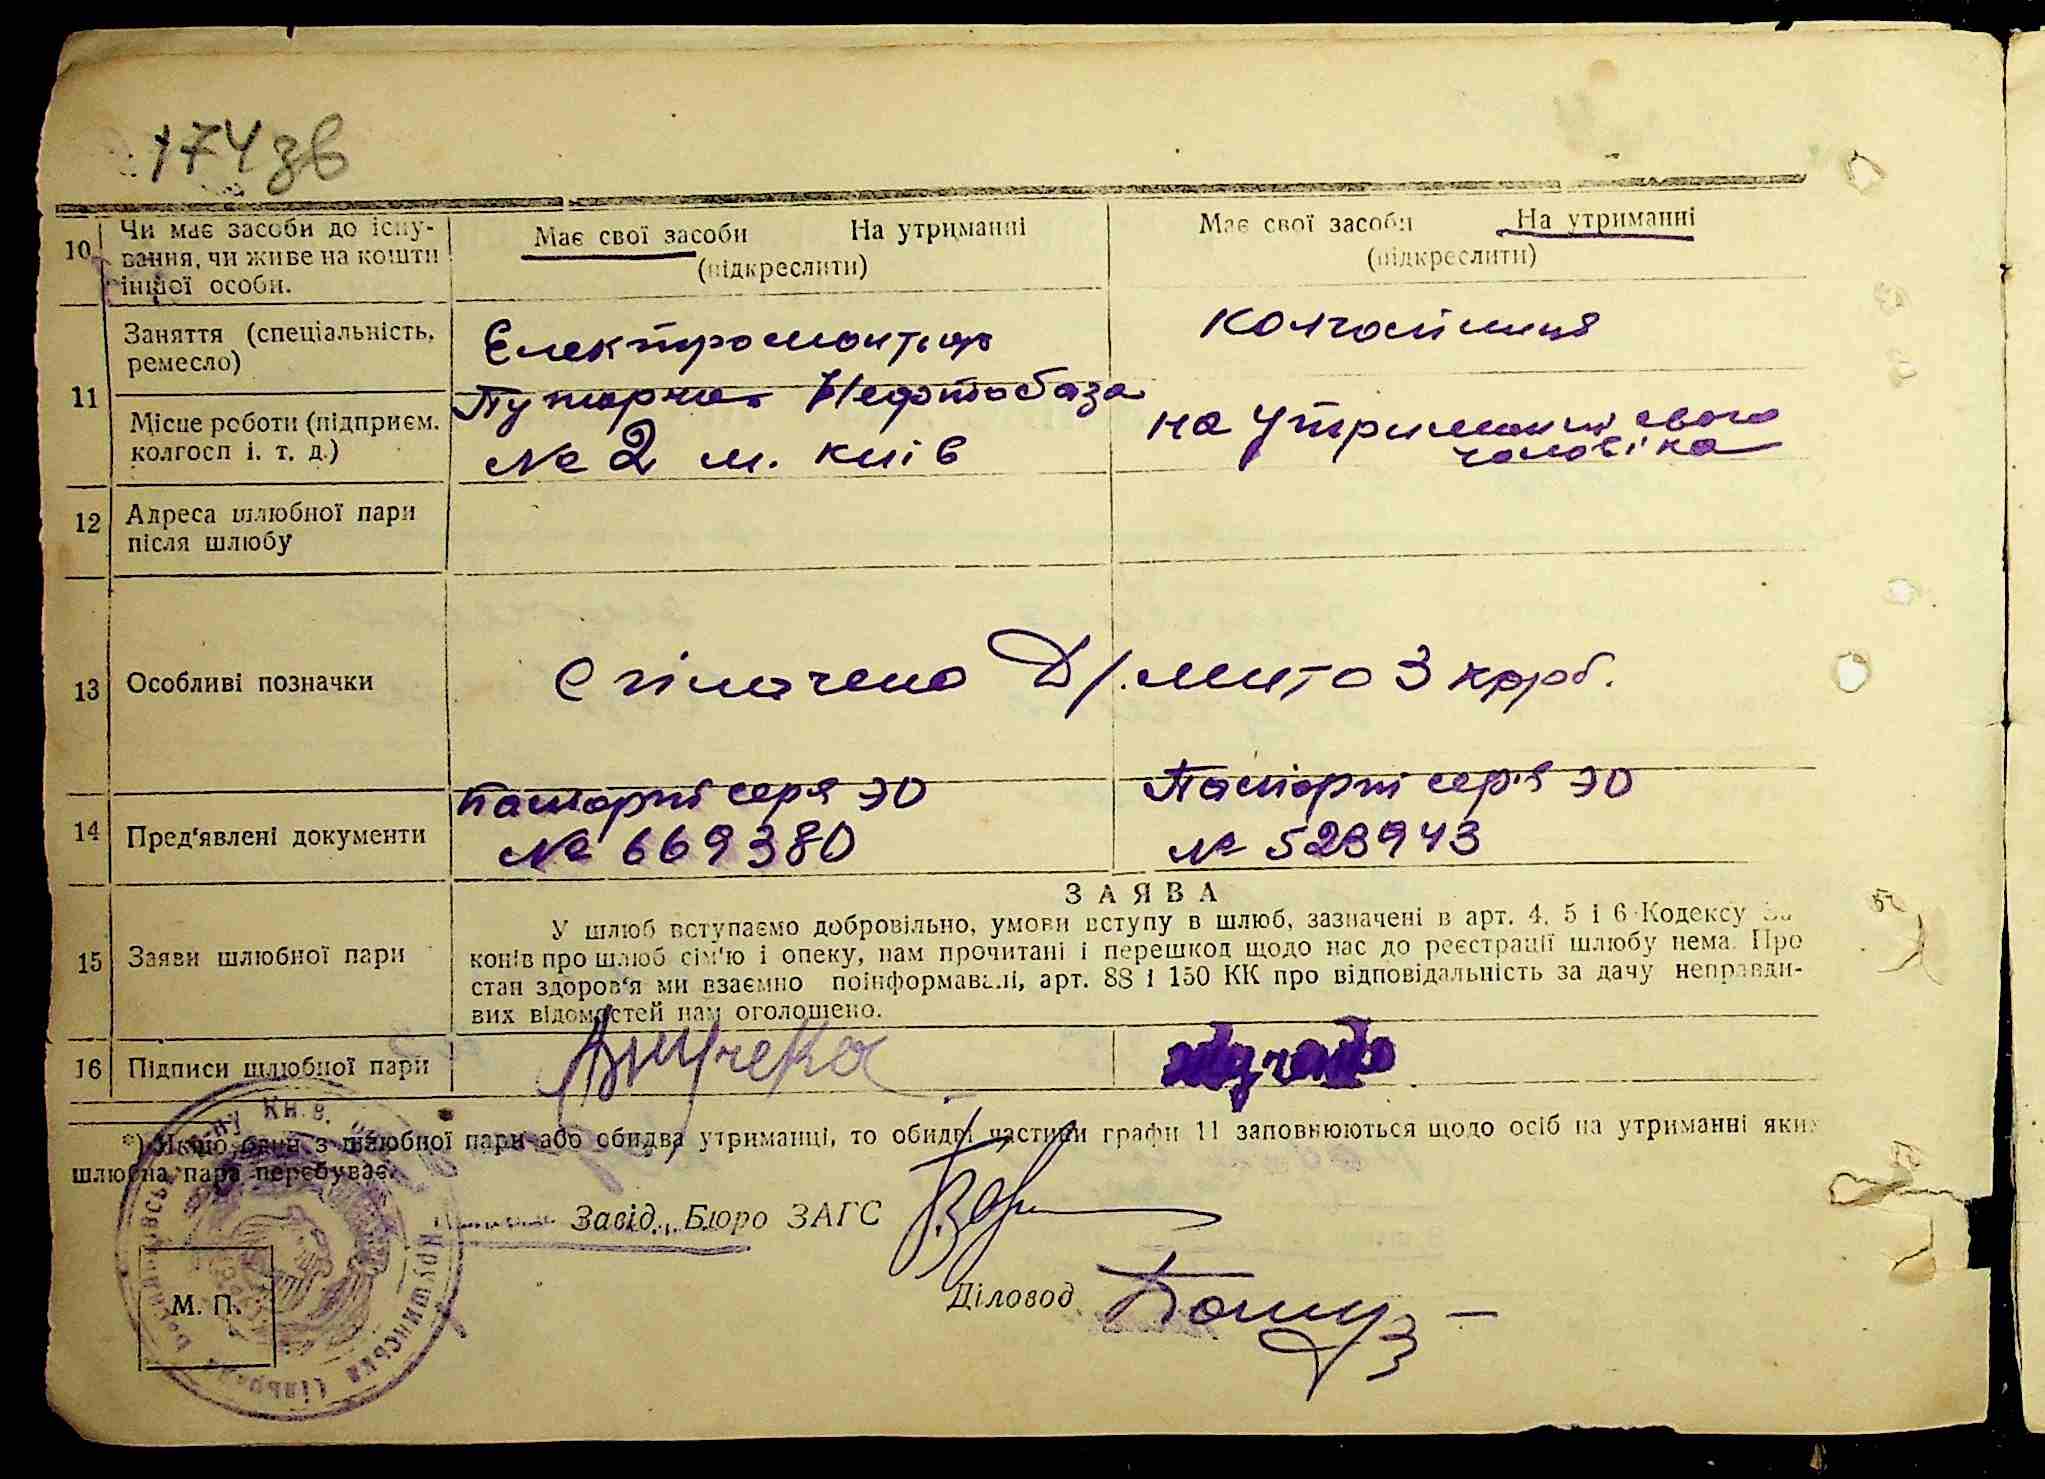 174 зв
10 Чи має засоби до існу- вання, чи живе на кошти іншої особи.
Має свої засоби На утриманні
(підкреслити)
Має свої засоби На утриманні
(підкреслити)
11 Заняття (спеціальність, ремесло)
Електромонтьор
колгоспниця
Місце роботи (підприєм. колгосп і. т. д.)
Нефтобаза
№ 2 м. київ
на утриманні свого
чоловіка
12 Адреса шлюбної пари
після шлюбу
13 Особливі позначки
Сплачено Д/.мито 3 карб.
14 Пред'явлені документи
Паспорт серія ЭО
№ 669380
Паспорт серія ЭО
№ 523943
15 Заяви шлюбної пари
ЗАЯВА
У шлюб вступаємо добровільно, умови вступу в шлюб, зазначені в арт. 4, 5 і 6 Кодексу За-
конів про шлюб сім'ю і опеку, нам прочитані і перешкод щодо нас до реєстрації шлюбу нема. Про
стан здоров'я ми взаємно поінформавалі, арт. 88 і 150 КК про відповідальність за дачу неправди-
вих відомостей нам оголошено.
16 Підписи шлюбної пари
*) Якщо один з шлюбної пари або обидва утриманці, то обидві частини графи 11 заповнюються щодо осіб на утриманні яких
шлюбна пара перебуває.
Завід. Бюро ЗАГС
Діловод
М. П.